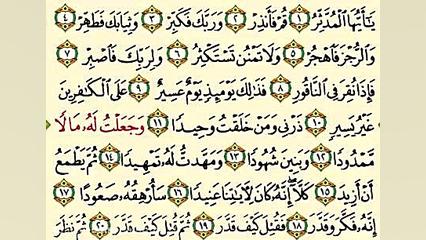 يَٰٓأَيُّهَا ٱلْمُدَّثِّرُ ١ قُمْ فَأَنذِرْ ٢ وَرَبَّكَ فَكَبِّرْ ٣ وَثِيَابَكَ فَطَهِّرْ ٤
وَٱلرُّجْزَ فَٱهْجُرْ ٥ وَلَا تَمْنُن تَسْتَكْثِرُ ٦ وَلِرَبِّكَ فَٱصْبِرْ ٧
فَإِذَا نُقِرَ فِى ٱلنَّاقُورِ ٨ فَذَٰلِكَ يَوْمَئِذٍ يَوْمٌ عَسِيرٌ ٩ عَلَى ٱلْكَٰفِرِينَ
غَيْرُ يَسِيرٍ ١٠ ذَرْنِى وَمَنْ خَلَقْتُ وَحِيدًا ١١ وَجَعَلْتُ لَهُۥ مَالًا
مَّمْدُودًا ١٢ وَبَنِينَ شُهُودًا ١٣ وَمَهَّدتُّ لَهُۥ تَمْهِيدًا ١٤ ثُمَّ يَطْمَعُ
أَنْ أَزِيدَ ١٥ كَلَّآ إِنَّهُۥ كَانَ لِءَايَٰتِنَا عَنِيدًا ١٦ سَأُرْهِقُهُۥ صَعُودًا ١٧
إِنَّهُۥ فَكَّرَ وَقَدَّرَ ١٨ فَقُتِلَ كَيْفَ قَدَّرَ ١٩ ثُمَّ قُتِلَ كَيْفَ قَدَّرَ ٢٠ ثُمَّ نَظَرَ